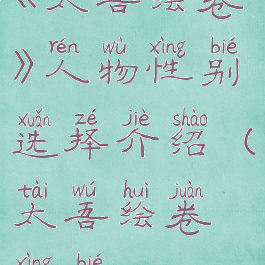 《太吾绘卷
rén wù xìng bié
》人物性别
xuǎn zé jiè shào
选择介绍（
tài wú huì juàn
太吾绘卷
xìng bié